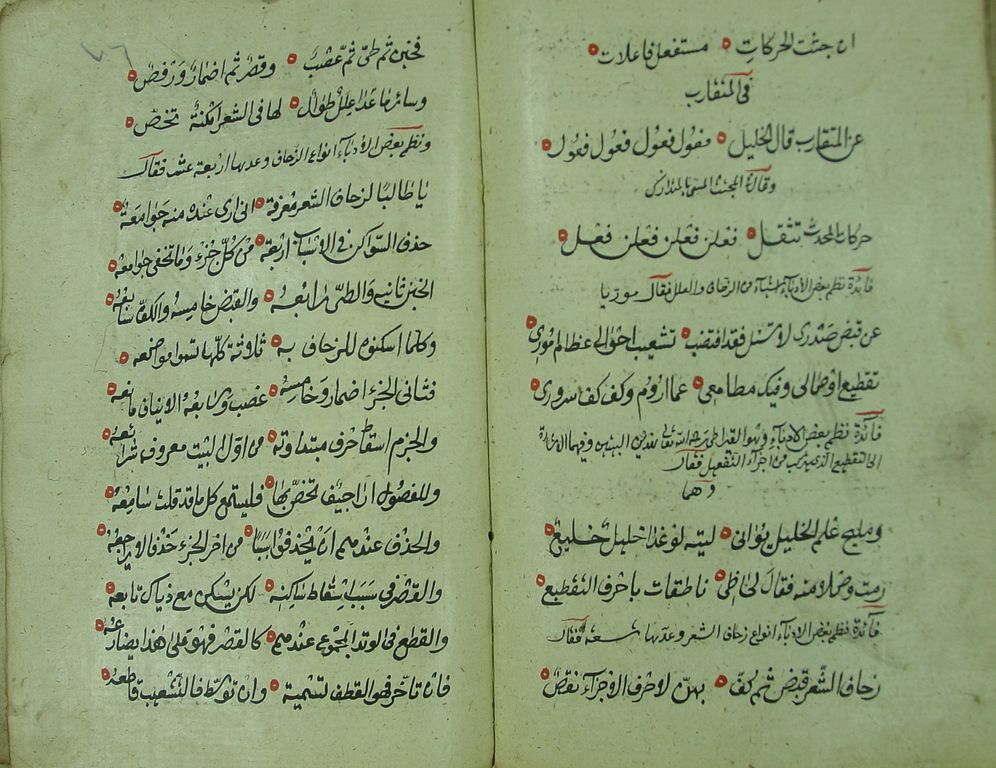 ان جثت الحركات مستفعلن فاعلات
فى المتقارب
عن المتقارب قال الخليل فعول فعول فعول فعول
وقال المجتث المسما بالمتدارك
حركات المحدث تنتقل فعلن فعلن فعلن فعل
فائدة نظم بعض الادباء اشياء من الزحاف والعلل فقال موريا
عن قبض صدرى لا تسل فقد اقتضب تشعيب احوالى عظائم نورى
تقطيع اوصالى وفيك مطامعى عما اروم وكف كف سرورى
فائدة نظم بعض الادباء وهو القيراطى رحمه الله تعالى هذين البيتين وفيهما اشارة
الى التقطيع الذى يتركب من اجزاء التفعيل فقال
وهما
ومليح علم الخليل يوانى ليته لو غدا خليل خليع
رمت وصلا منه فقال لحاظى ناطقات باحرف التقطيع
فائدة نظم بعض الادباء انواع زحاف الشعر وعدتها تسعة فقال
زحاف الشعر قبض ثم كف بهن لاحرف الاجزاء نقص
فخبن ثم طى ثم عصب وقصر ثم اضمار ورفص
وسائر ما عدا علل طوال لها فى الشعر امكنة تخص
ونظم بعض الادباء انواع الزحاف وعدها اربعة عشر فقال
يا طالبا لزحاف الشعر معرفة انى ارى عنده منه جوامعه
حذف السواكن فى الاسباب اربعة من كل جزء وما تخفى جوامعه
الخبن ثانيه والطى رابعه والقبض خامسه والكف سابعه
وكلما اسكنوه للزحاف به ثلاثة كلها تسموا مواضعه
فثانى الجزء اضمار وخامسه عصب وسابعه الاتيان مانعه
والجزم اسقاط حرف مبتداوته من اول البيت معروف شرائعه
وللفصول ازاحيف تخص بها فليستمع كل ما قد قلت سامعه
والحذف عندهم ان يحذفوا سببا من اخر الجزء حذفا لا يراجعه
والقصر فى سبب اسقاط ساكنه لكن يسكن مع ذياك تابعه
والقطع فى الوتد المجموع عندهم كالقصر فهو على هذا يضارعه
فان تاخر فهو القطف تسمية وان توسط فالتشعيب قاطعه